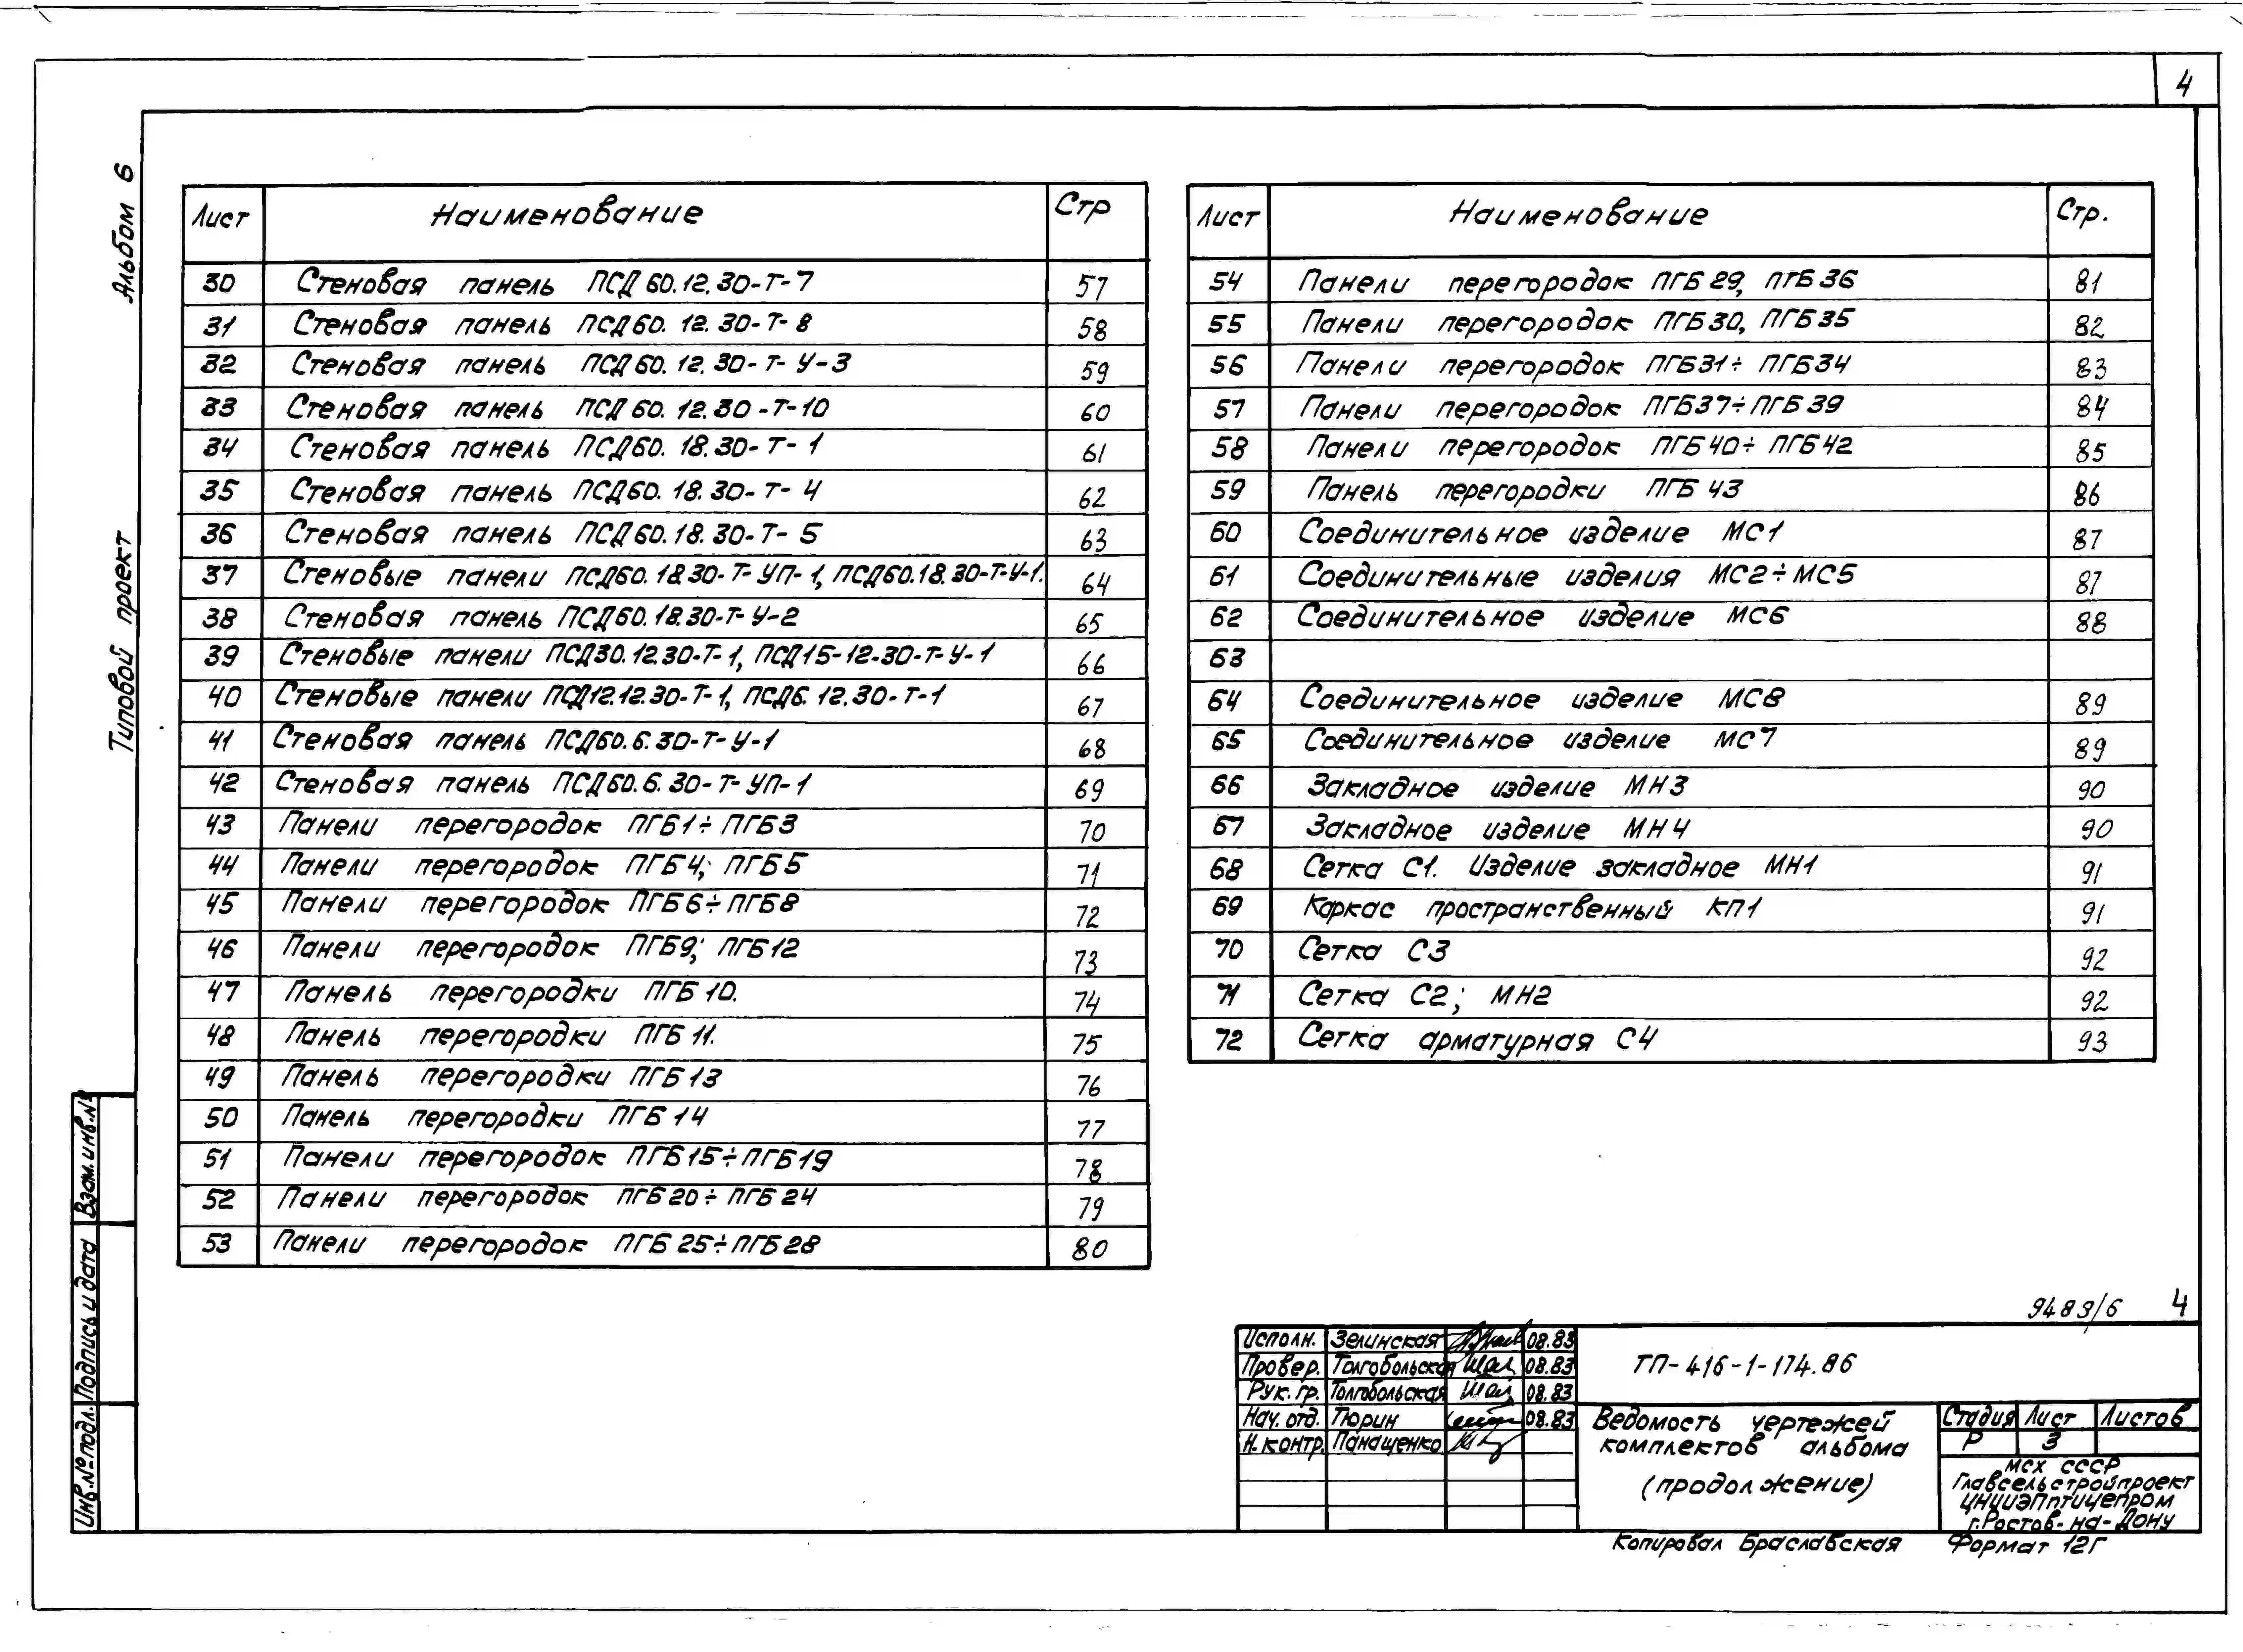 4
Альбом 6
Типовой проект
Лист Наименование Стр
30 Стеновая панель ПСД 60.12.30-Т-7 57
31 Стеновая панель ПСД60.12.30-Т-8 58
32 Стеновая панель ПСД60.12.30-Т-У-3 59
33 Стеновая панель ПСД 60.12.30-Т-10 60
34 Стеновая панель ПСД60.18.30-Т-1 61
35 Стеновая панель ПСД60.18.30-Т-4 62
36 Стеновая панель ПСД60.18.30-Т-5 63
37 Стеновые панели ПСД60.18.30-Т-УП-1, ПСД60.18.30-Т-У-1. 64
38 Стеновая панель ПСД60.18.30-Т-У-2 65
39 Стеновые панели ПСД30.12.30-Т-1, ПСД15-12-30-Т-У-1 66
40 Стеновые панели ПСД12.12.30-Т-1, ПСД6.12.30-Т-1 67
41 Стеновая панель ПСД60.6.30-Т-У-1 68
42 Стеновая панель ПСД60.6.30-Т-УП-1 69
43 Панели перегородок ПГБ1÷ПГБ3 70
44 Панели перегородок ПГБ4; ПГБ5 71
45 Панели перегородок ПГБ6÷ПГБ8 72
46 Панели перегородок ПГБ9; ПГБ12 73
47 Панель перегородки ПГБ10. 74
48 Панель перегородки ПГБ11. 75
49 Панель перегородки ПГБ13 76
50 Панель перегородки ПГБ14 77
51 Панели перегородок ПГБ15÷ПГБ19 78
52 Панели перегородок ПГБ20÷ПГБ24 79
53 Панели перегородок ПГБ25÷ПГБ28 80
Лист Наименование Стр.
54 Панели перегородок ПГБ29, ПГБ36 81
55 Панели перегородок ПГБ30, ПГБ35 82
56 Панели перегородок ПГБ31÷ПГБ34 83
57 Панели перегородок ПГБ37÷ПГБ39 84
58 Панели перегородок ПГБ40÷ПГБ42 85
59 Панель перегородки ПГБ43 86
60 Соединительное изделие МС1 87
61 Соединительные изделия МС2÷МС5 87
62 Соединительное изделие МС6 88
63
64 Соединительное изделие МС8 89
65 Соединительное изделие МС7 89
66 Закладное изделие МН3 90
67 Закладное изделие МН4 90
68 Сетка С1. Изделие закладное МН1 91
69 Каркас пространственный КП1 91
70 Сетка С3 92
71 Сетка С2; МН2 92
72 Сетка арматурная С4 93
Взам.инв.№
Подпись и дата
Инв.№подл.
9483/6 4
Исполн. Зелинская 08.83
Провер. Толгобольская 08.83
Рук.гр. Толгобольская 08.83
Нач.отд. Тюрин 08.83
Н.контр. Панащенко
ТП-416-1-174.86
Ведомость чертежей
комплектов альбома
(продолжение)
Стадия Лист Листов
Р 3
МСХ СССР
Главсельстройпроект
ЦНИИЭПптицепром
г.Ростов-на-Дону
Копировал Браславская Формат 12Г